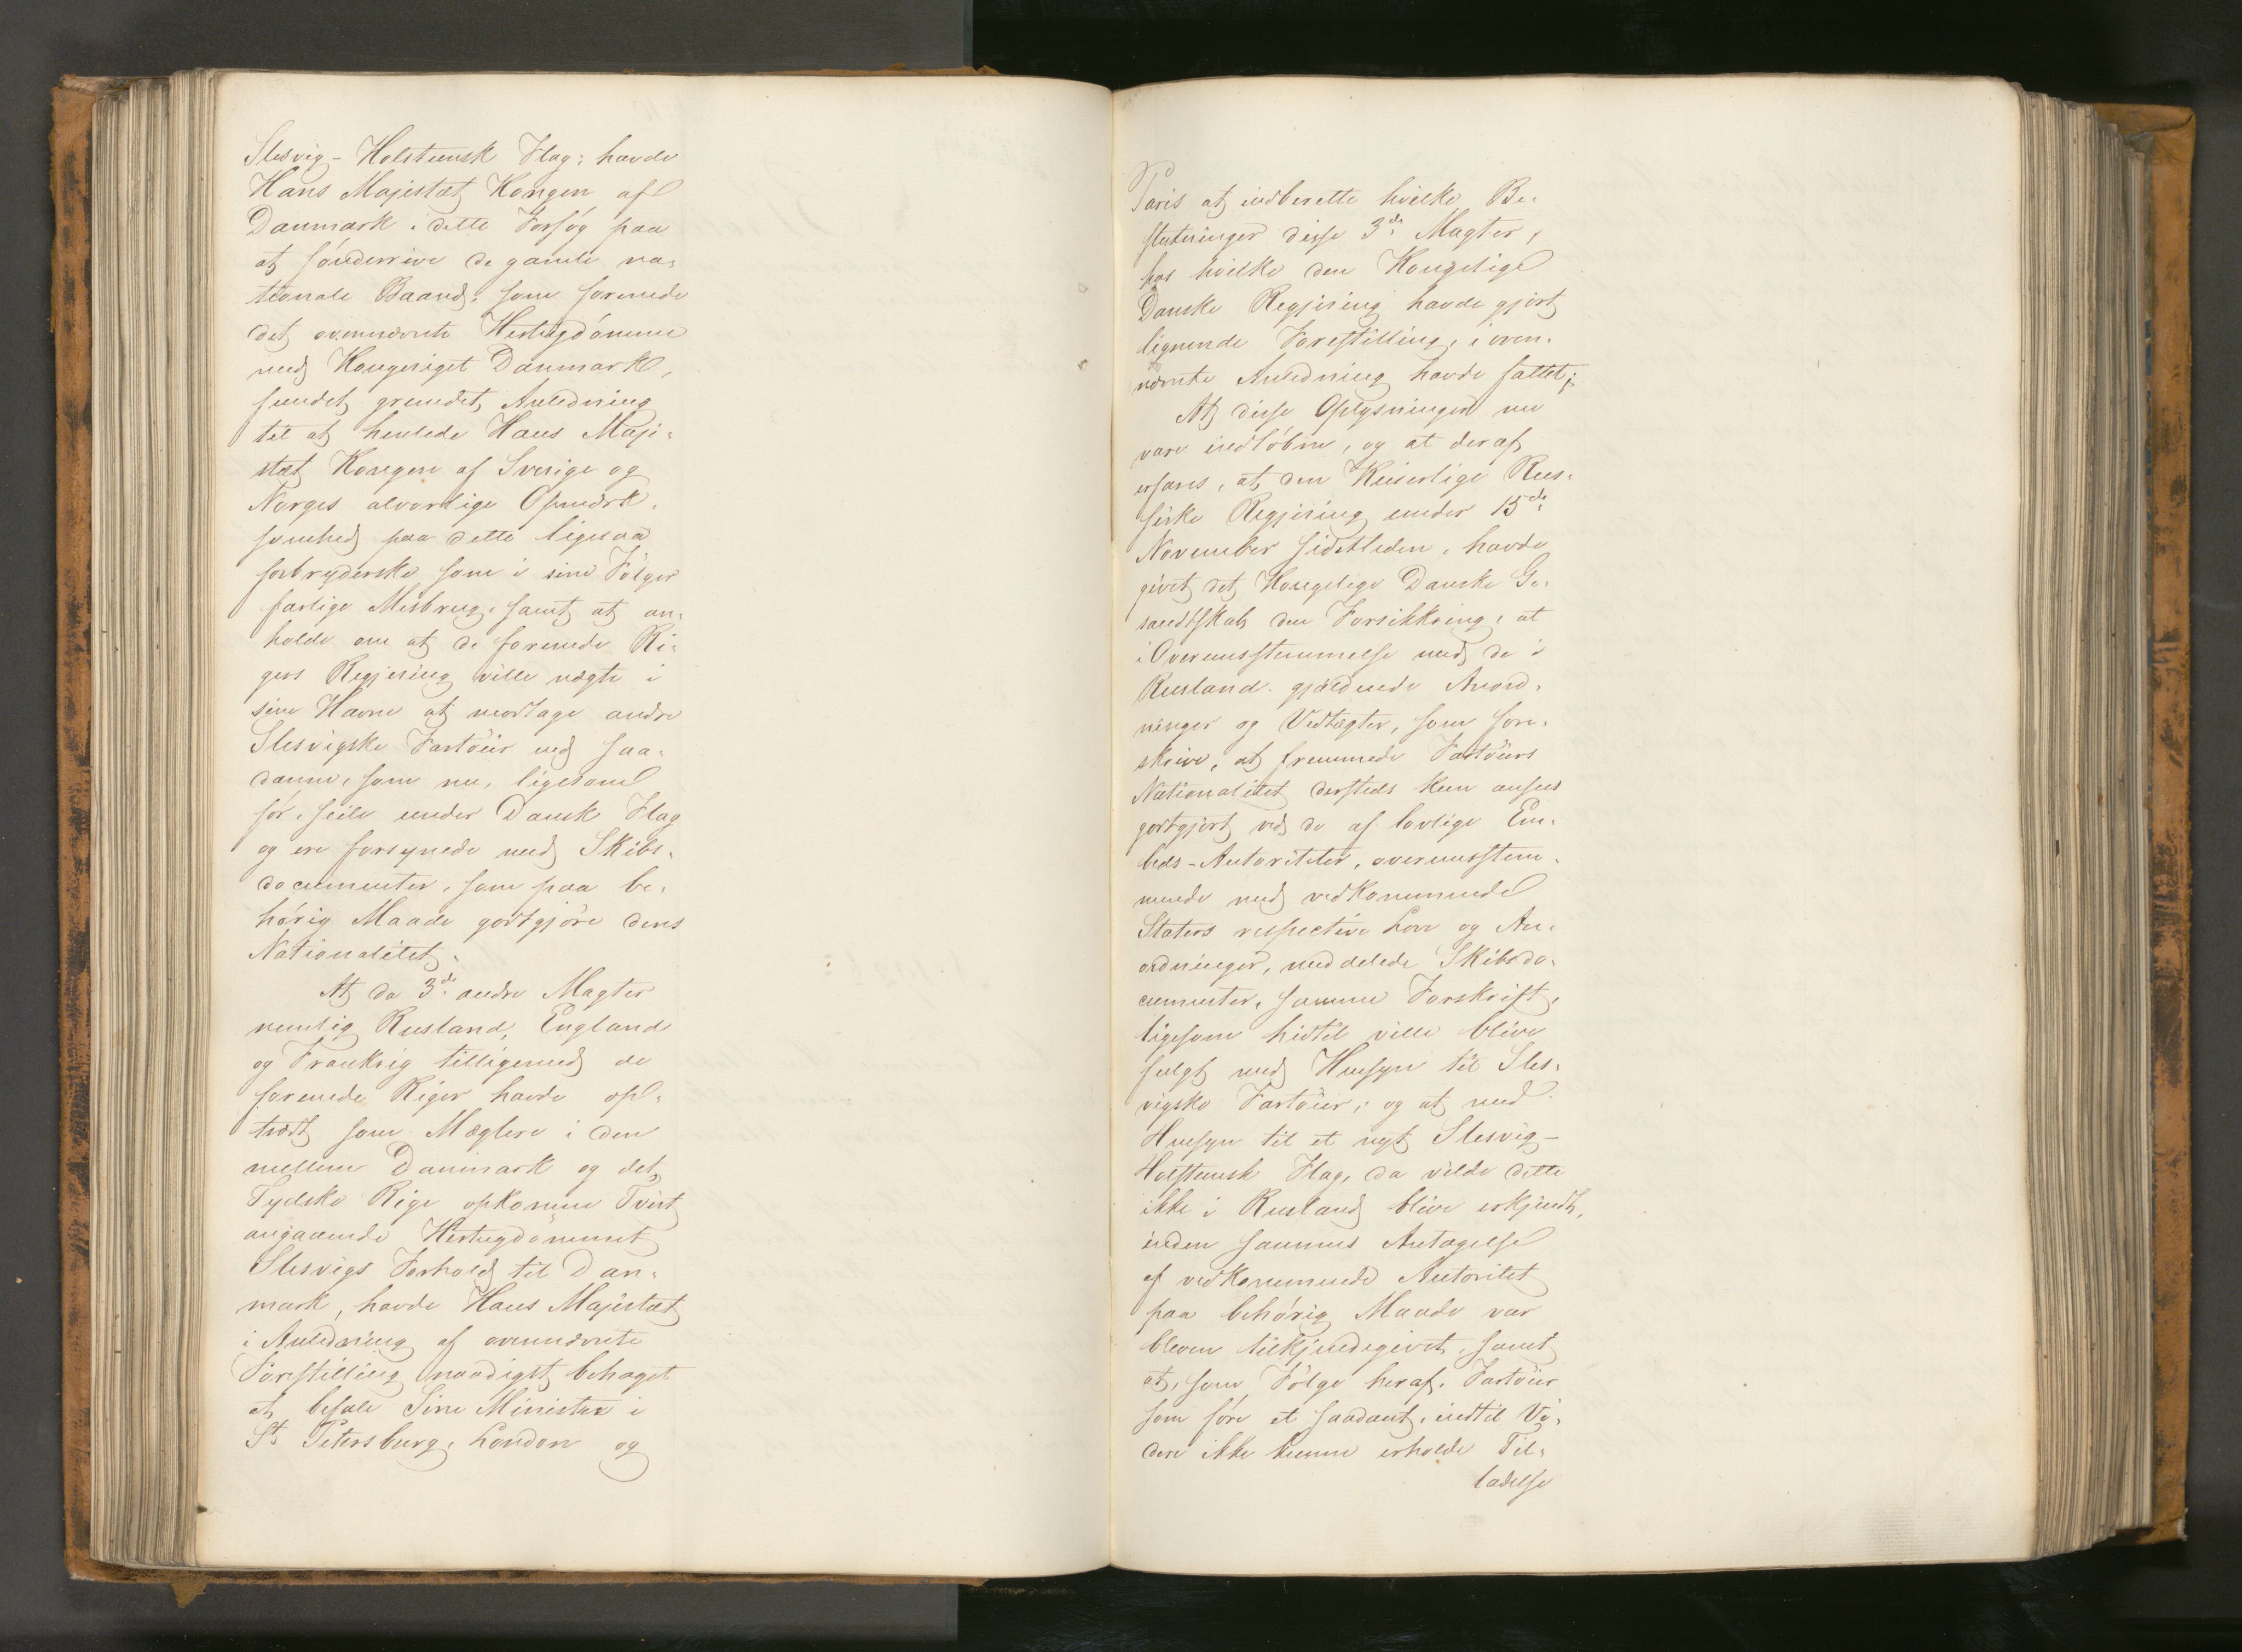 Slesvig-Holsteensk Flag; havde
Hans Majestæt Kongen af
Danmark i dette Forsøg paa
at sønderrive de gamle na-
tionale Baand, som forenede
det ovennævnte Hertugdømme
med Kongeriget Danmark,
fundet grundet Anledning
til at henlede Hans Maje-
stæt Kongen af Sverige og
Norges alvorlige Opmærk-
somhed paa dette ligesaa
forbryderske som i sine Følger
farlige Misbrug, samt at an-
holde om at de forenede Ri-
gers Regjering ville nægte i
sine Havne at modtage andre
Slesvigske Fartøier end saa-
danne, som nu, ligesom
før, seile under Dansk Flag
og ere forsynede med Skibs-
documenter, som paa be-
hørig Maade godtgjøre dens
Nationalitet.
At da 3de andre Magter
nemlig Rusland, England
og Frankrig tilligemed de
forenede Riger havde op-
traadt som Mæglere i den
mellem Danmark og det
Tydske Rige opkomne Tvist
angaaende Hertugdømmet
Slesvigs Forhold til Dan-
mark, havde Hans Majestæt
i Anledning af ovennævnte
Forestilling naadigst behaget
at befale Sine Ministre i
St Petersburg, London og
Paris at indberette hvilke Be-
slutninger disse 3de Magter,
hos hvilke den Kongelige
Danske Regjering havde gjort
lignende Forestilling, i oven-
nævnte Anledning havde fattet;
At disse Oplysninger nu
vare indløbne, og at deraf
erfares, at den Keiserlige Rus-
siske Regjering under 15de
November sidstleden, havde
givet det Kongelige Danske Ge-
sandtskab den Forsikkring, at
i Overensstemmelse med de i
Rusland gjældende Anord-
ninger og Vedtægter, som fore-
skrive, at fremmede Fartøiers
Nationalitet dersteds kun ansees
godtgjort ved de af lovlige Em-
beds-Autoriteter, overensstem-
mende med vedkommende
Staters respective Love og An-
ordninger, meddelede Skibsdo-
cumenter, samme Forskrift,
ligesom hidtil ville blive
fulgt med Hensyn til Sles-
vigske Fartøier; og at med
Hensyn til et nyt Slesvig-
Holsteensk Flag, da vilde dette
ikke i Rusland blive erkjendt,
inden sammes Antagelse
af vedkommende Autoritet
paa behørig Maade var
bleven tilkjendegivet, samt
at, som Følge heraf, Fartøier
som føre et saadant, indtil Vi-
dere ikke kunne erholde Til-
ladelse